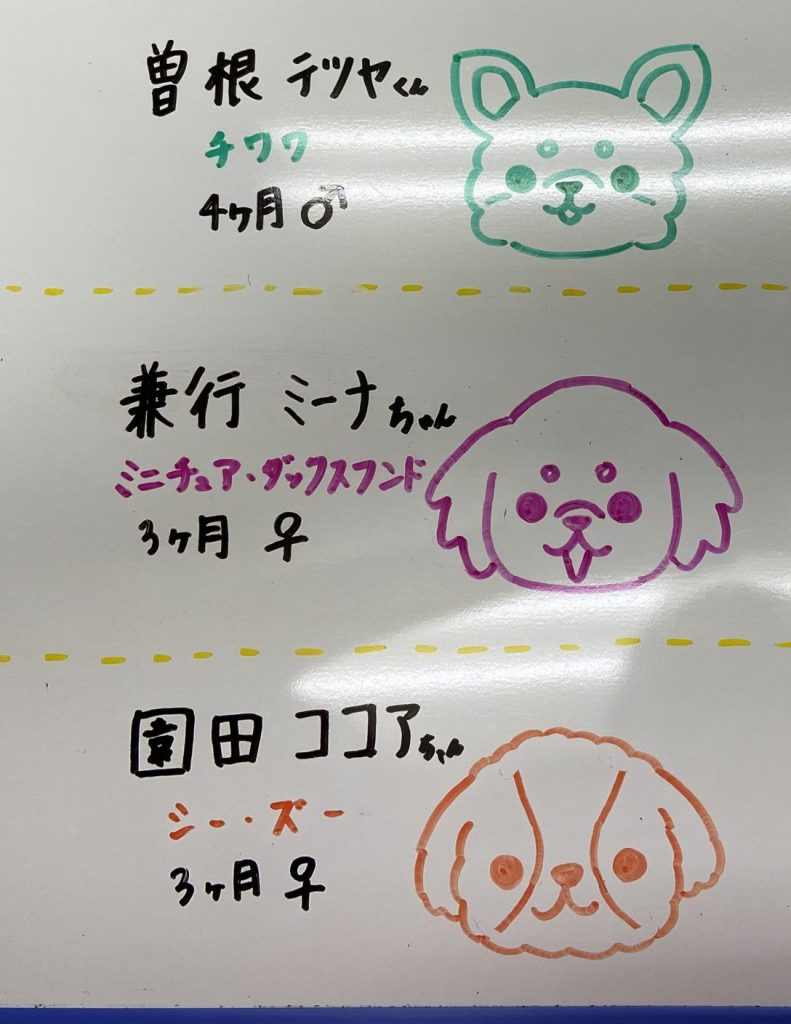 曽根 テツヤくん
チワワ
4ヶ月 ♂
兼行 ミーナちゃん
ミニチュア・ダックスフンド
3ヶ月 ♀
園田 ココアちゃん
シー・ズー
3ヶ月 ♀